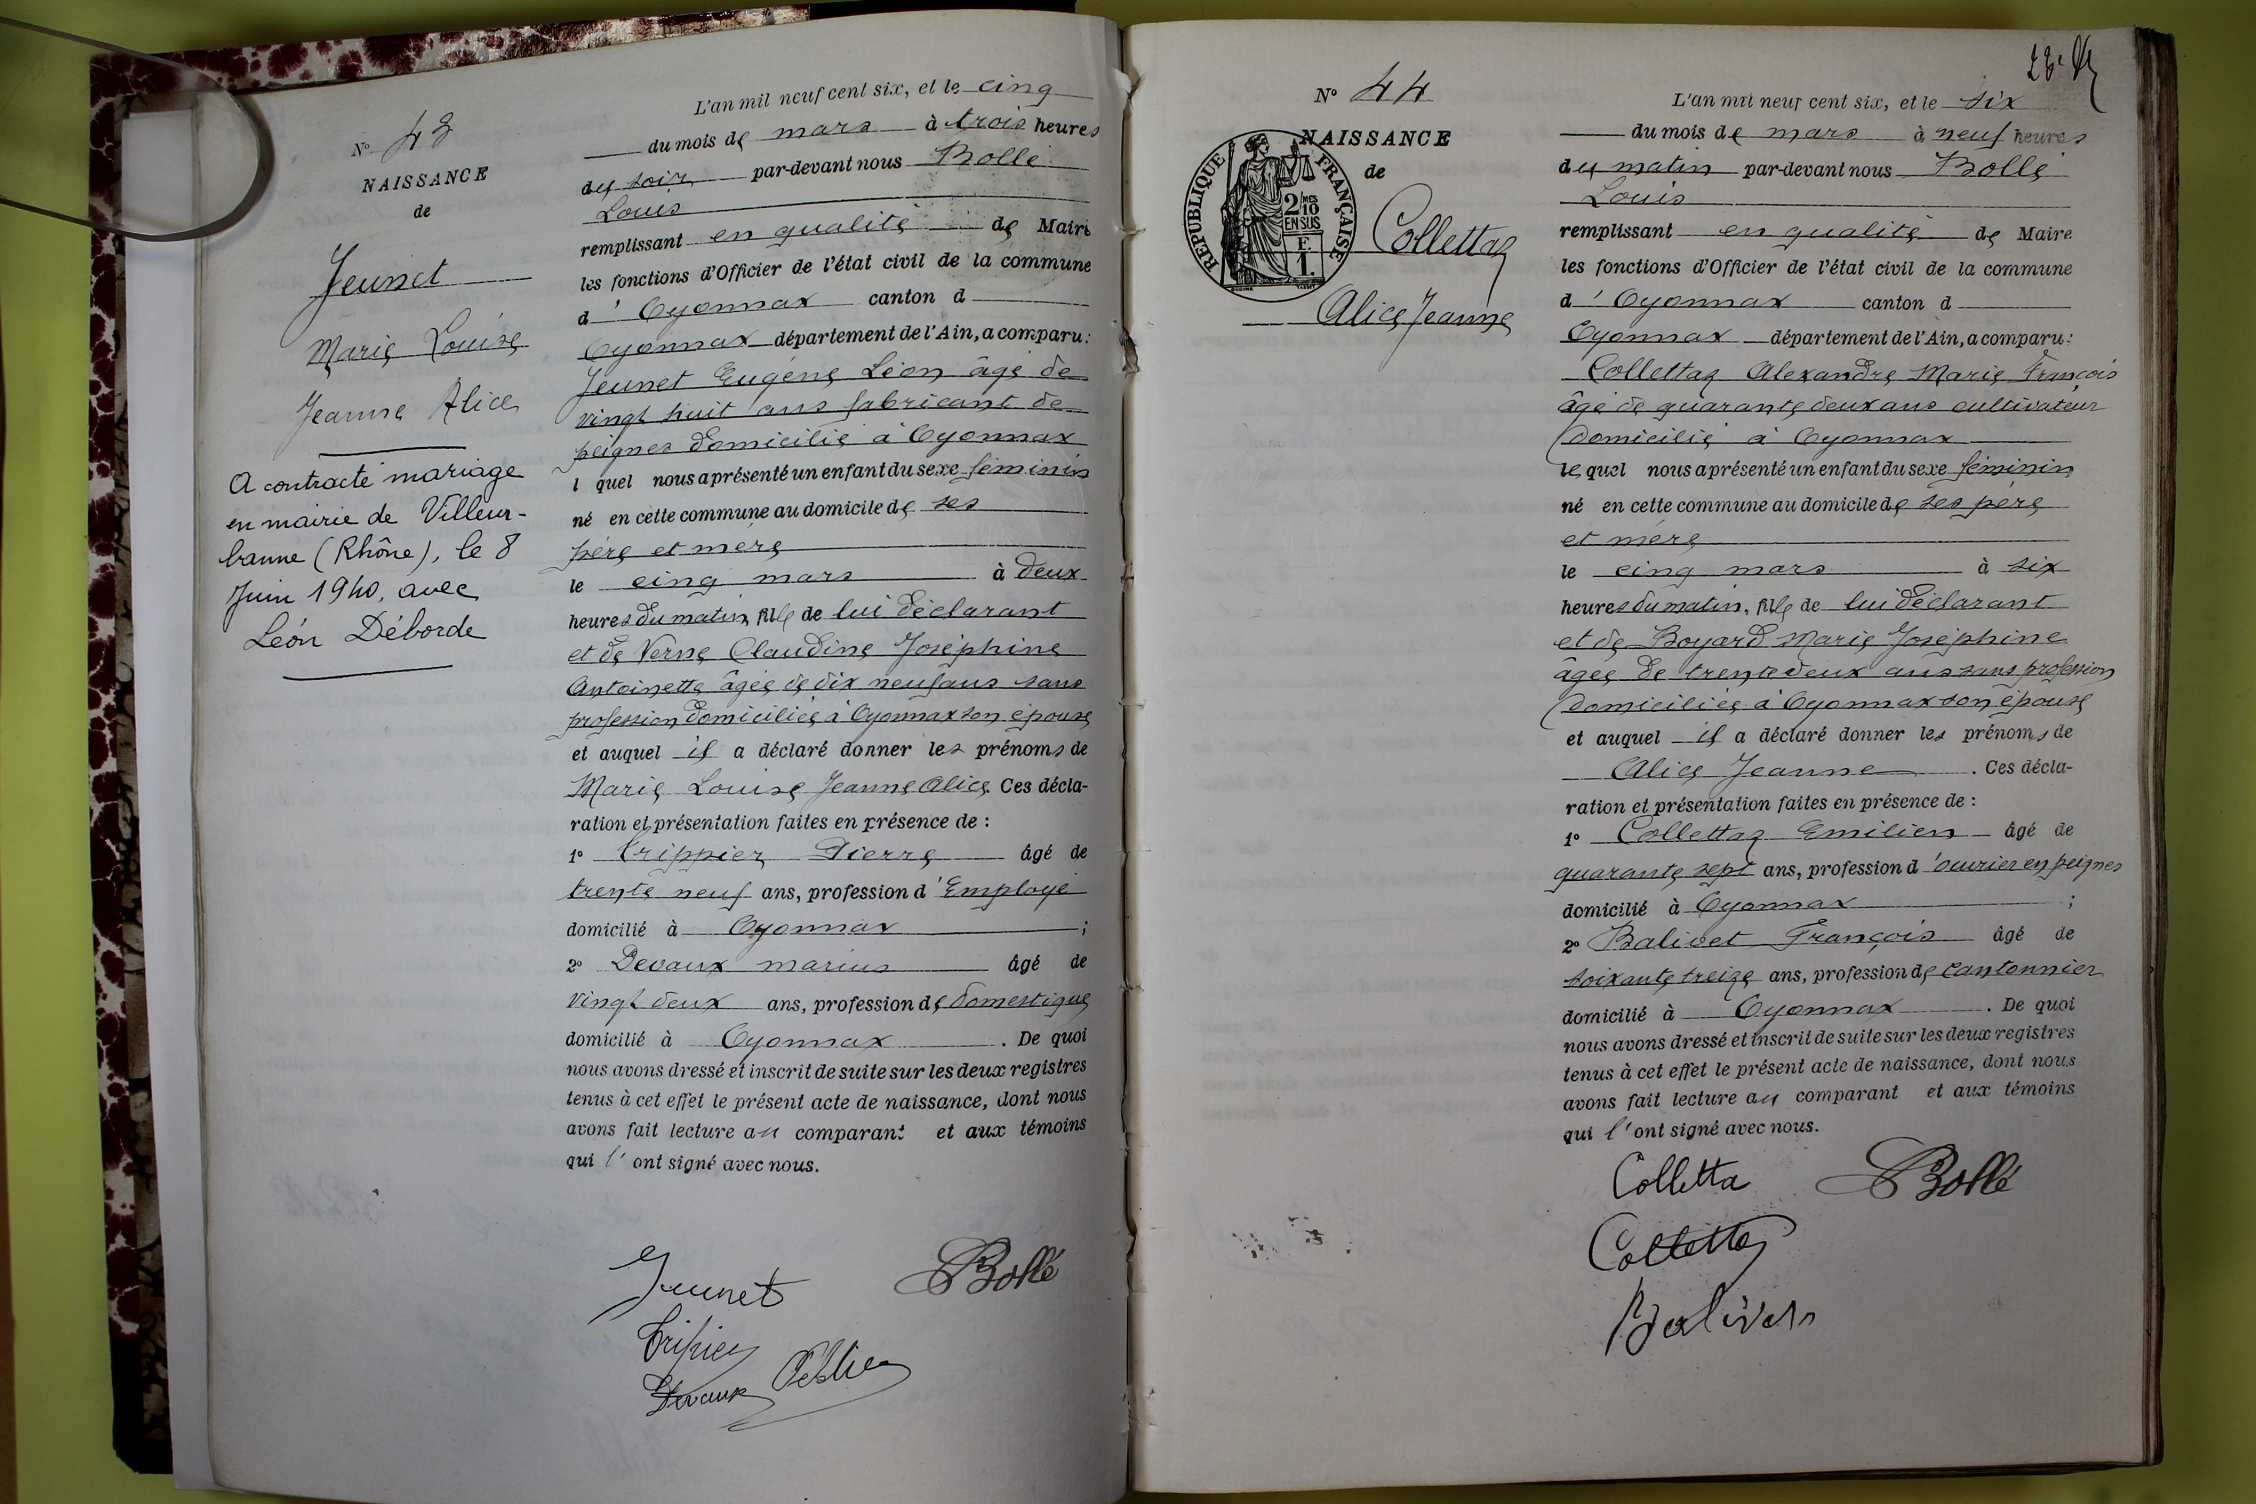 N° 43
NAISSANCE
de
Jeunet
Marie Louise
Jeanne Alice
A contracté mariage
en mairie de Villeur-
banne (Rhône), le 8
Juin 1940, avec
Léon Déborde
L'an mil neuf cent six, et le cinq
du mois de mars à trois heures
du soir par-devant nous Bollé
Louis
remplissant en qualité de Maire
les fonctions d'Officier de l'état civil de la commune
d' Oyonnax canton d
Oyonnax département de l'Ain, a comparu :
Jeunet Eugène Léon âgé de
vingt huit ans fabricant de
peignes domicilié à Oyonnax
l quel nous a présenté un enfant du sexe féminin
né en cette commune au domicile de ses
père et mère
le cinq mars à deux
heures du matin, fille de lui déclarant
et de Verne Claudine Joséphine
Antoinette âgée de dix neuf ans sans
profession domiciliée à Oyonnax son épouse
et auquel il a déclaré donner les prénoms de
Marie Louise Jeanne Alice Ces décla-
ration et présentation faites en présence de :
1° Trippier Pierre âgé de
trente neuf ans, profession d'Employé
domicilié à Oyonnax ;
2° Devaux Marius âgé de
vingt deux ans, profession de domestique
domicilié à Oyonnax . De quoi
nous avons dressé et inscrit de suite sur les deux registres
tenus à cet effet le présent acte de naissance, dont nous
avons fait lecture au comparant et aux témoins
qui l' ont signé avec nous.
Jeunet Bollé
Tripier
Devaux
N° 44
NAISSANCE
de
REPUBLIQUE FRANÇAISE
2/10 MES
EN SUS
F.
1.
Collettaz
Alice Jeanne
L'an mil neuf cent six, et le six
du mois de mars à neuf heures
du matin par-devant nous Bollé
Louis
remplissant en qualité de Maire
les fonctions d'Officier de l'état civil de la commune
d' Oyonnax canton d
Oyonnax département de l'Ain, a comparu :
Collettaz Alexandre Marie François
âgé de quarante deux ans cultivateur
domicilié à Oyonnax
lequel nous a présenté un enfant du sexe féminin
né en cette commune au domicile de ses père
et mère
le cinq mars à six
heures du matin, fille de lui déclarant
et de Boyard Marie Joséphine
âgée de trente deux ans sans profession
domiciliée à Oyonnax son épouse
et auquel il a déclaré donner les prénoms de
Alice Jeanne . Ces décla-
ration et présentation faites en présence de :
1° Collettaz Emilien âgé de
quarante sept ans, profession d'ouvrier en peignes
domicilié à Oyonnax ;
2° Balivet François âgé de
soixante treize ans, profession de cantonnier
domicilié à Oyonnax . De quoi
nous avons dressé et inscrit de suite sur les deux registres
tenus à cet effet le présent acte de naissance, dont nous
avons fait lecture au comparant et aux témoins
qui l' ont signé avec nous.
Colletta Bollé
Collettaz